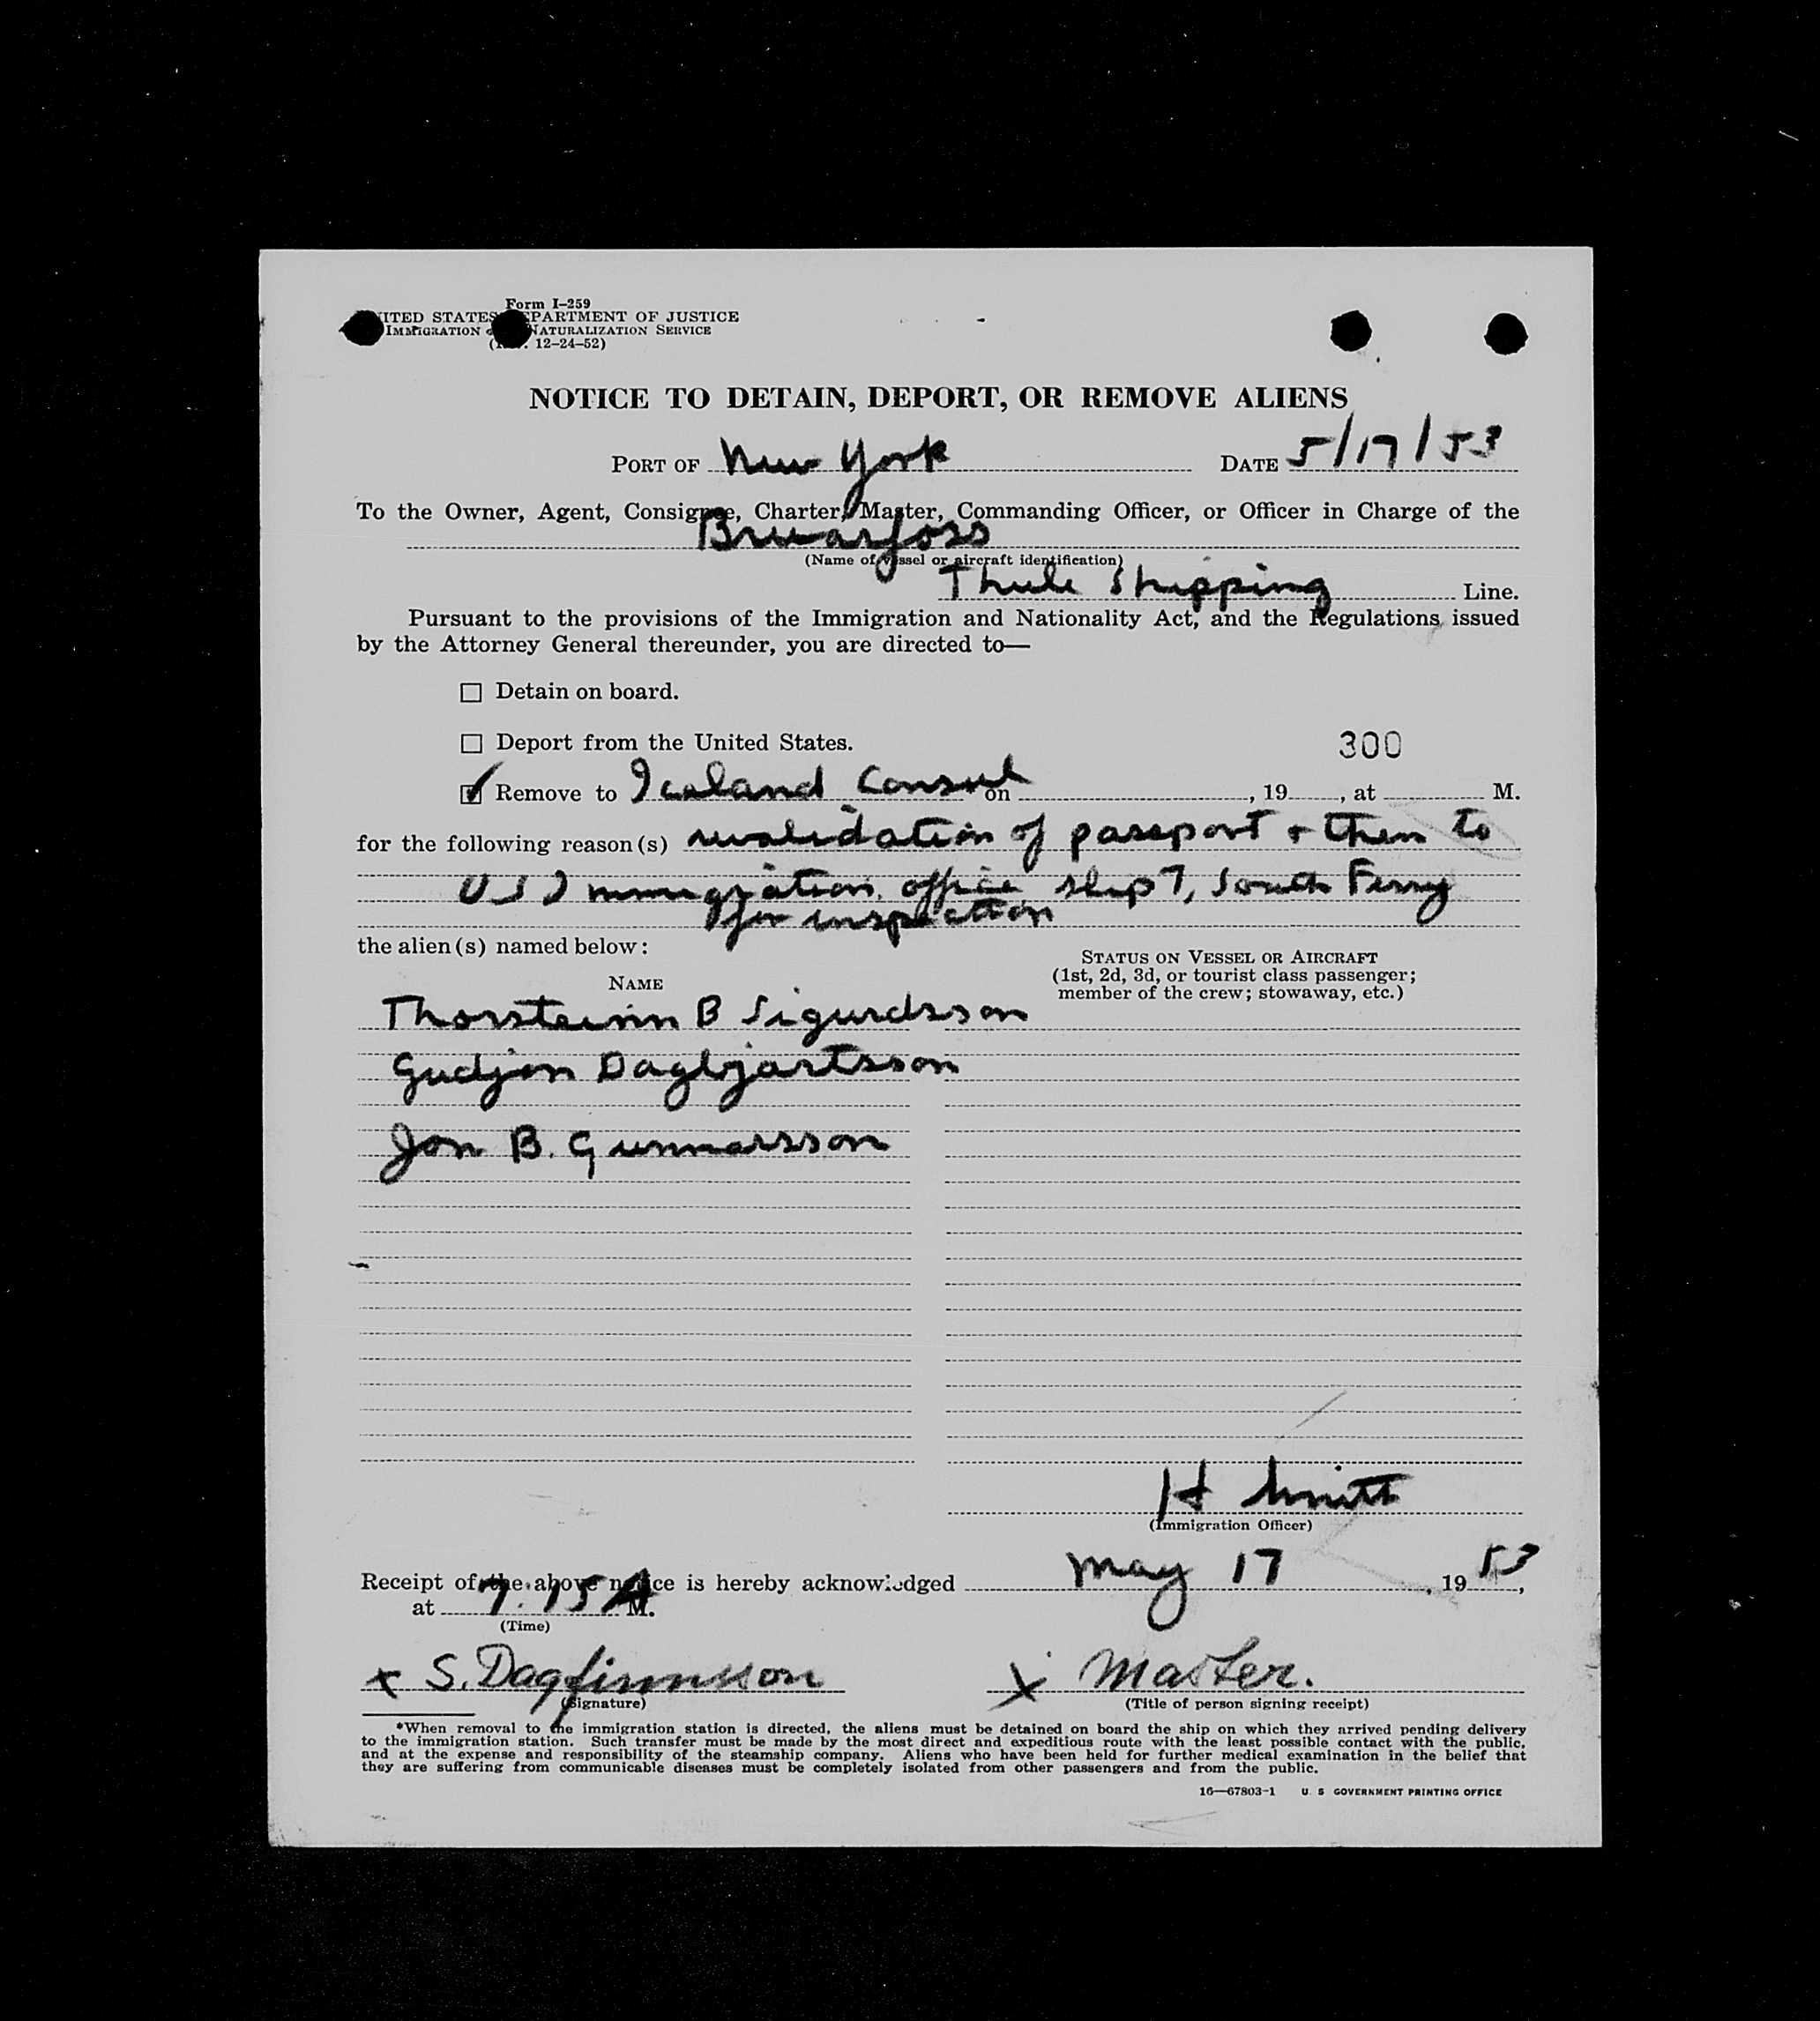 Form I-259
UNITED STATES DEPARTMENT OF JUSTICE
IMMIGRATION NATURALIZATION SERVICE
( 12-24-52)
NOTICE TO DETAIN, DEPORT, OR REMOVE ALIENS
PORT OF New York DATE 5/17/53
To the Owner, Agent, Consignee, Charter, Master, Commanding Officer, or Officer in Charge of the
Bruarfoss
(Name of vessel or aircraft identification)
Thule Shipping Line.
Pursuant to the provisions of the Immigration and Nationality Act, and the Regulations issued
by the Attorney General thereunder, you are directed to—
☐ Detain on board.
☐ Deport from the United States. 300
☑ Remove to Iceland Consul on , 19 , at M.
for the following reason(s) revalidation of passport + then to
US Immigration office slip 7, South Ferry
for inspection
the alien(s) named below:
NAME
STATUS ON VESSEL OR AIRCRAFT
(1st, 2d, 3d, or tourist class passenger;
member of the crew; stowaway, etc.)
Thorsteinn B Sigurdsson
Gudjon Dagbjartsson
Jon B. Gunnarsson
H Smith
(Immigration Officer)
Receipt of the above notice is hereby acknowledged May 17, 1953,
at 7.15 A M.
(Time)
x S. Dagfinnsson x Master.
(Signature) (Title of person signing receipt)
*When removal to the immigration station is directed, the aliens must be detained on board the ship on which they arrived pending delivery
to the immigration station. Such transfer must be made by the most direct and expeditious route with the least possible contact with the public,
and at the expense and responsibility of the steamship company. Aliens who have been held for further medical examination in the belief that
they are suffering from communicable diseases must be completely isolated from other passengers and from the public.
16—67803-1 U. S. GOVERNMENT PRINTING OFFICE